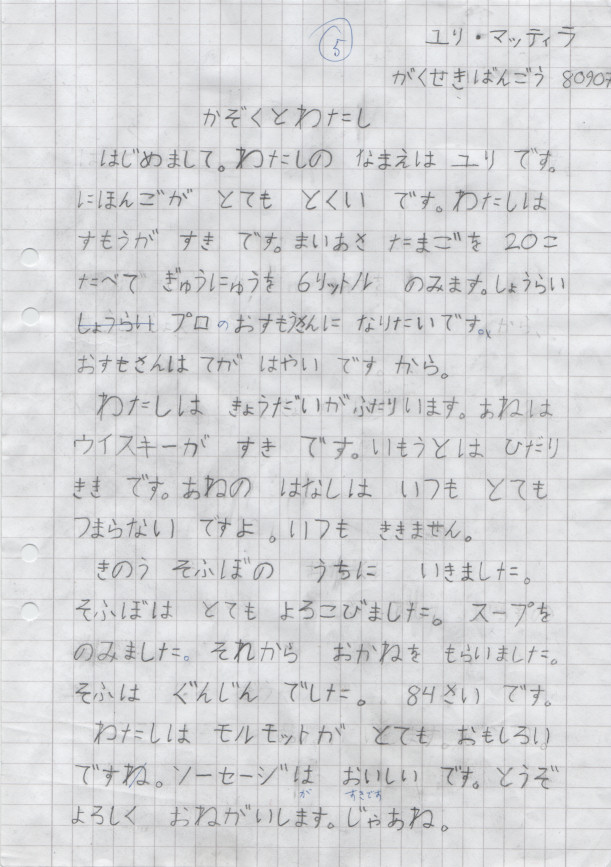 5
ユリ・マッティラ
がくせきばんごう 80907
かぞくとわたし
はじめまして。わたしの なまえは ユリ です。
にほんごが とても とくい です。わたしは
すもうが すき です。まいあさ たまごを 20こ
たべて ぎゅうにゅうを 6リットル のみます。しょうらい
しょうらい プロのおすもうさんに なりたいです。から、
おすもさんは てが はやい です から。
わたしは きょうだいが ふたりいます。あねは
ウイスキーが すき です。いもうとは ひだり
きき です。あねの はなしは いつも とても
つまらない ですよ。いつも ききません。
きのう そふぼの うちに いきました。
そふぼは とても よろこびました。スープを
のみました。それから おかねを もらいました。
そふは ぐんじん でした。84さい です。
わたしは モルモットが とても おもしろい
ですね。ソーセージは おいしい です。どうぞ
が すきです
よろしく おねがいします。じゃあね。